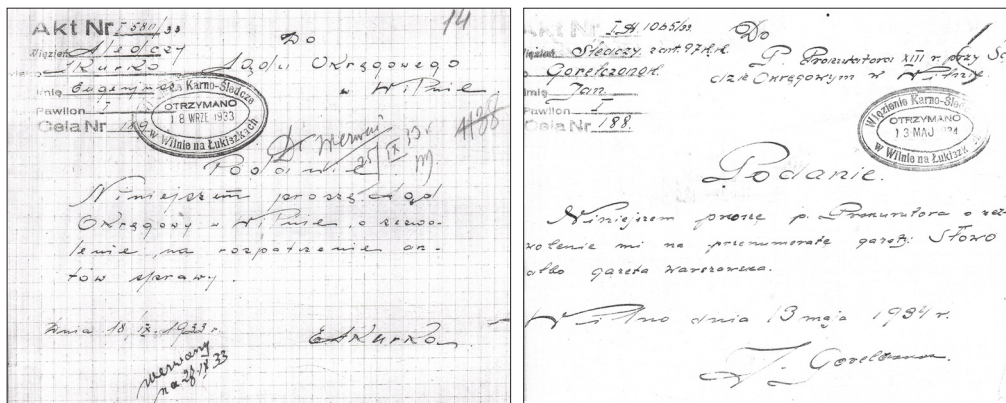 Akt Nr I 580/33
14
Więzień Śledczy
Skurko
Imię Eugenjusz
Pawilon I
Cela Nr
OTRZYMANO
18 WRZE 1933
w Wilnie na Łukiszkach
Do
Sądu Okręgowego
w Wilnie
4188
25/IX 33 r
Podanie
Niniejszem proszę Sąd
Okręgowy w Wilnie o zezwo-
lenie na rozpatrzenie ak-
tów sprawy.
Dnia 18/IX. 1933 r.
ESkurko
wezwany
na 28 IX 33
Akt Nr I A 1065/33
Więzień Śledczy z art. 97 k.k.
Imię Jan
Pawilon I
Cela Nr 188.
Do
P. Prokuratora XIII r. przy Są-
dzie Okręgowym w Wilnie.
Więzienie Karno-Śledcze
OTRZYMANO
13 MAJ
w Wilnie na Łukiszk
Podanie.
Niniejszem proszę p. Prokuratora o zez-
wolenie mi na prenumeratę gazety: Słowo
albo gazeta warszawska.
Wilno dnia 13 maja 1934 r.